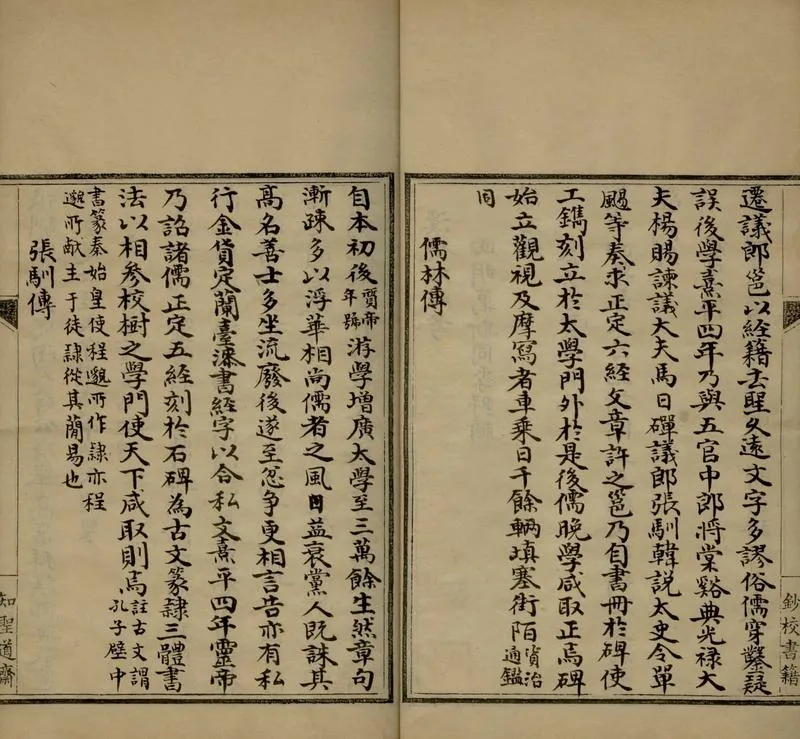 鈔校書籍
遷議郎邕以經籍去聖久遠文字多謬俗儒穿鑿疑
誤後學熹平四年乃與五官中郎將棠谿典光祿大
夫楊賜諫議大夫馬日磾議郎張馴韓説太史令單
颺等奏求正定六經文章許之邕乃自書冊於碑使
工鐫刻立於太學門外於是後儒晚學咸取正焉碑
始立觀視及摩寫者車乘日千餘輛填塞街陌資治通鑑
同
儒林傳
自本初後質帝年號游學增廣太學至三萬餘生然章句
漸疎多以浮華相尚儒者之風日益衰黨人既誅其
高名善士多坐流廢後遂至忿争更相言告亦有私
行金貨定蘭臺漆書經字以合私文熹平四年靈帝
乃詔諸儒正定五經刻於石碑為古文篆隸三體書
法以相參校樹之學門使天下咸取則焉註古文謂孔子壁中
書篆秦始皇使程邈所作隸亦程
邈所獻主于徒隸從其簡易也
張馴傳
知聖道齋